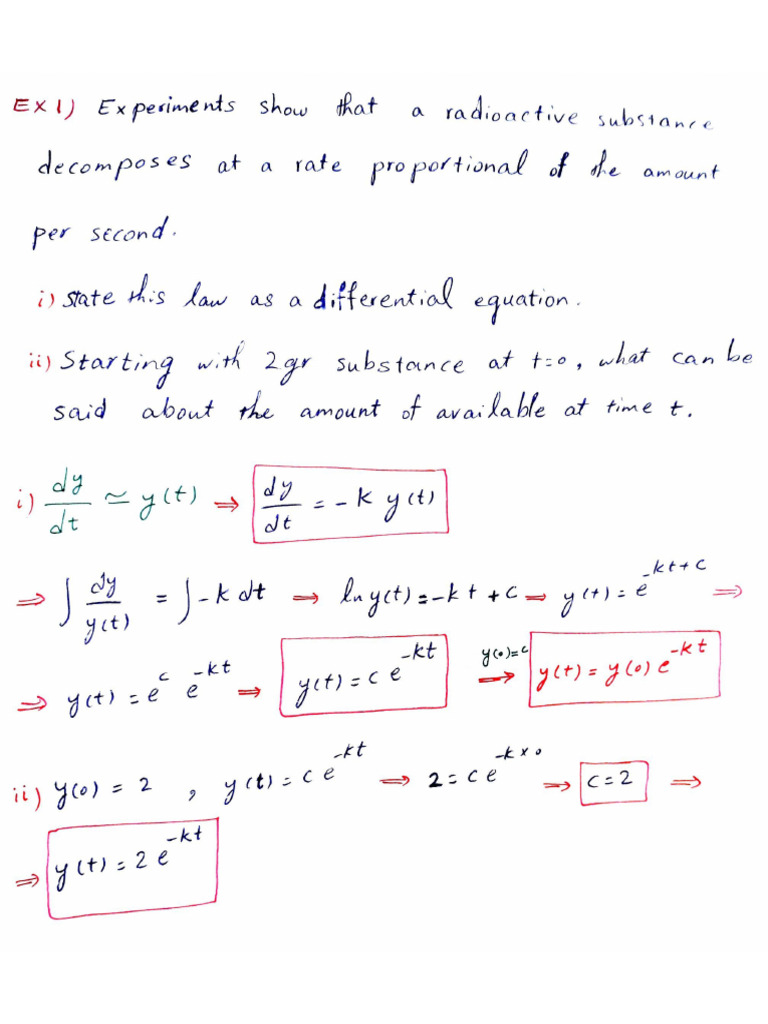 EX 1) Experiments show that a radioactive substance
decomposes at a rate proportional of the amount
per second.
i) state this law as a differential equation.
ii) Starting with 2gr substance at t=0, what can be
said about the amount of available at time t.
i) dy/dt ≃ y(t) ⇒ dy/dt = -k y(t)
⇒ ∫ dy/y(t) = ∫ -k dt ⇒ ln y(t) = -kt + c ⇒ y(t) = e^{-kt+c} ⇒
⇒ y(t) = e^c e^{-kt} ⇒ y(t) = c e^{-kt} y(0)=c ⇒ y(t) = y(0) e^{-kt}
ii) y(0) = 2 , y(t) = c e^{-kt} ⇒ 2 = c e^{-k×0} ⇒ c=2 ⇒
⇒ y(t) = 2 e^{-kt}